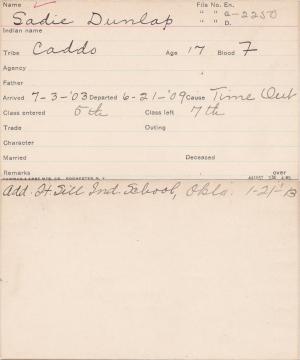 Name Sadie Dunlap File No. En.
" " G-2250
Indian name " " D.
Tribe Caddo Age 17 Blood F
Agency
Father
Arrived 7-3-'03 Departed 6-21-'09 Cause Time Out
Class entered 5th Class left 7th
Trade Outing
Character
Married Deceased
Remarks over
Add. Ft Sill Ind. School, Okla. 1-21-'13